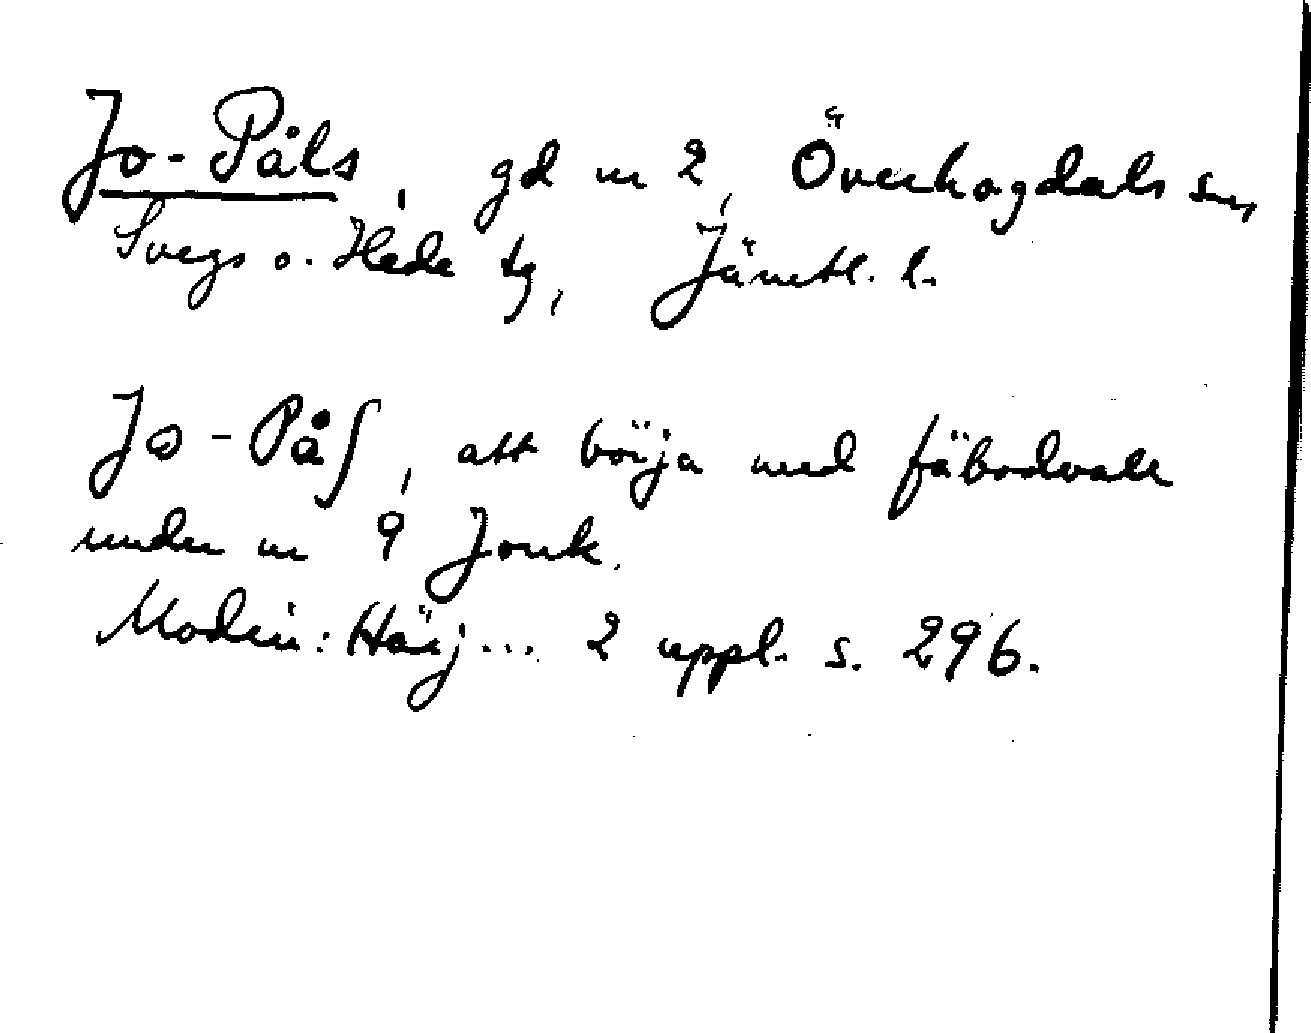 Jo-Påls, gd nr 2, Överhogdals sn,
Svegs o. Hede tg, Jämtl. l.
Jo-Påʃ, att börja med fäbodvall
under nr 9 Jonk.
Modin: Härj... 2 uppl. s. 296.